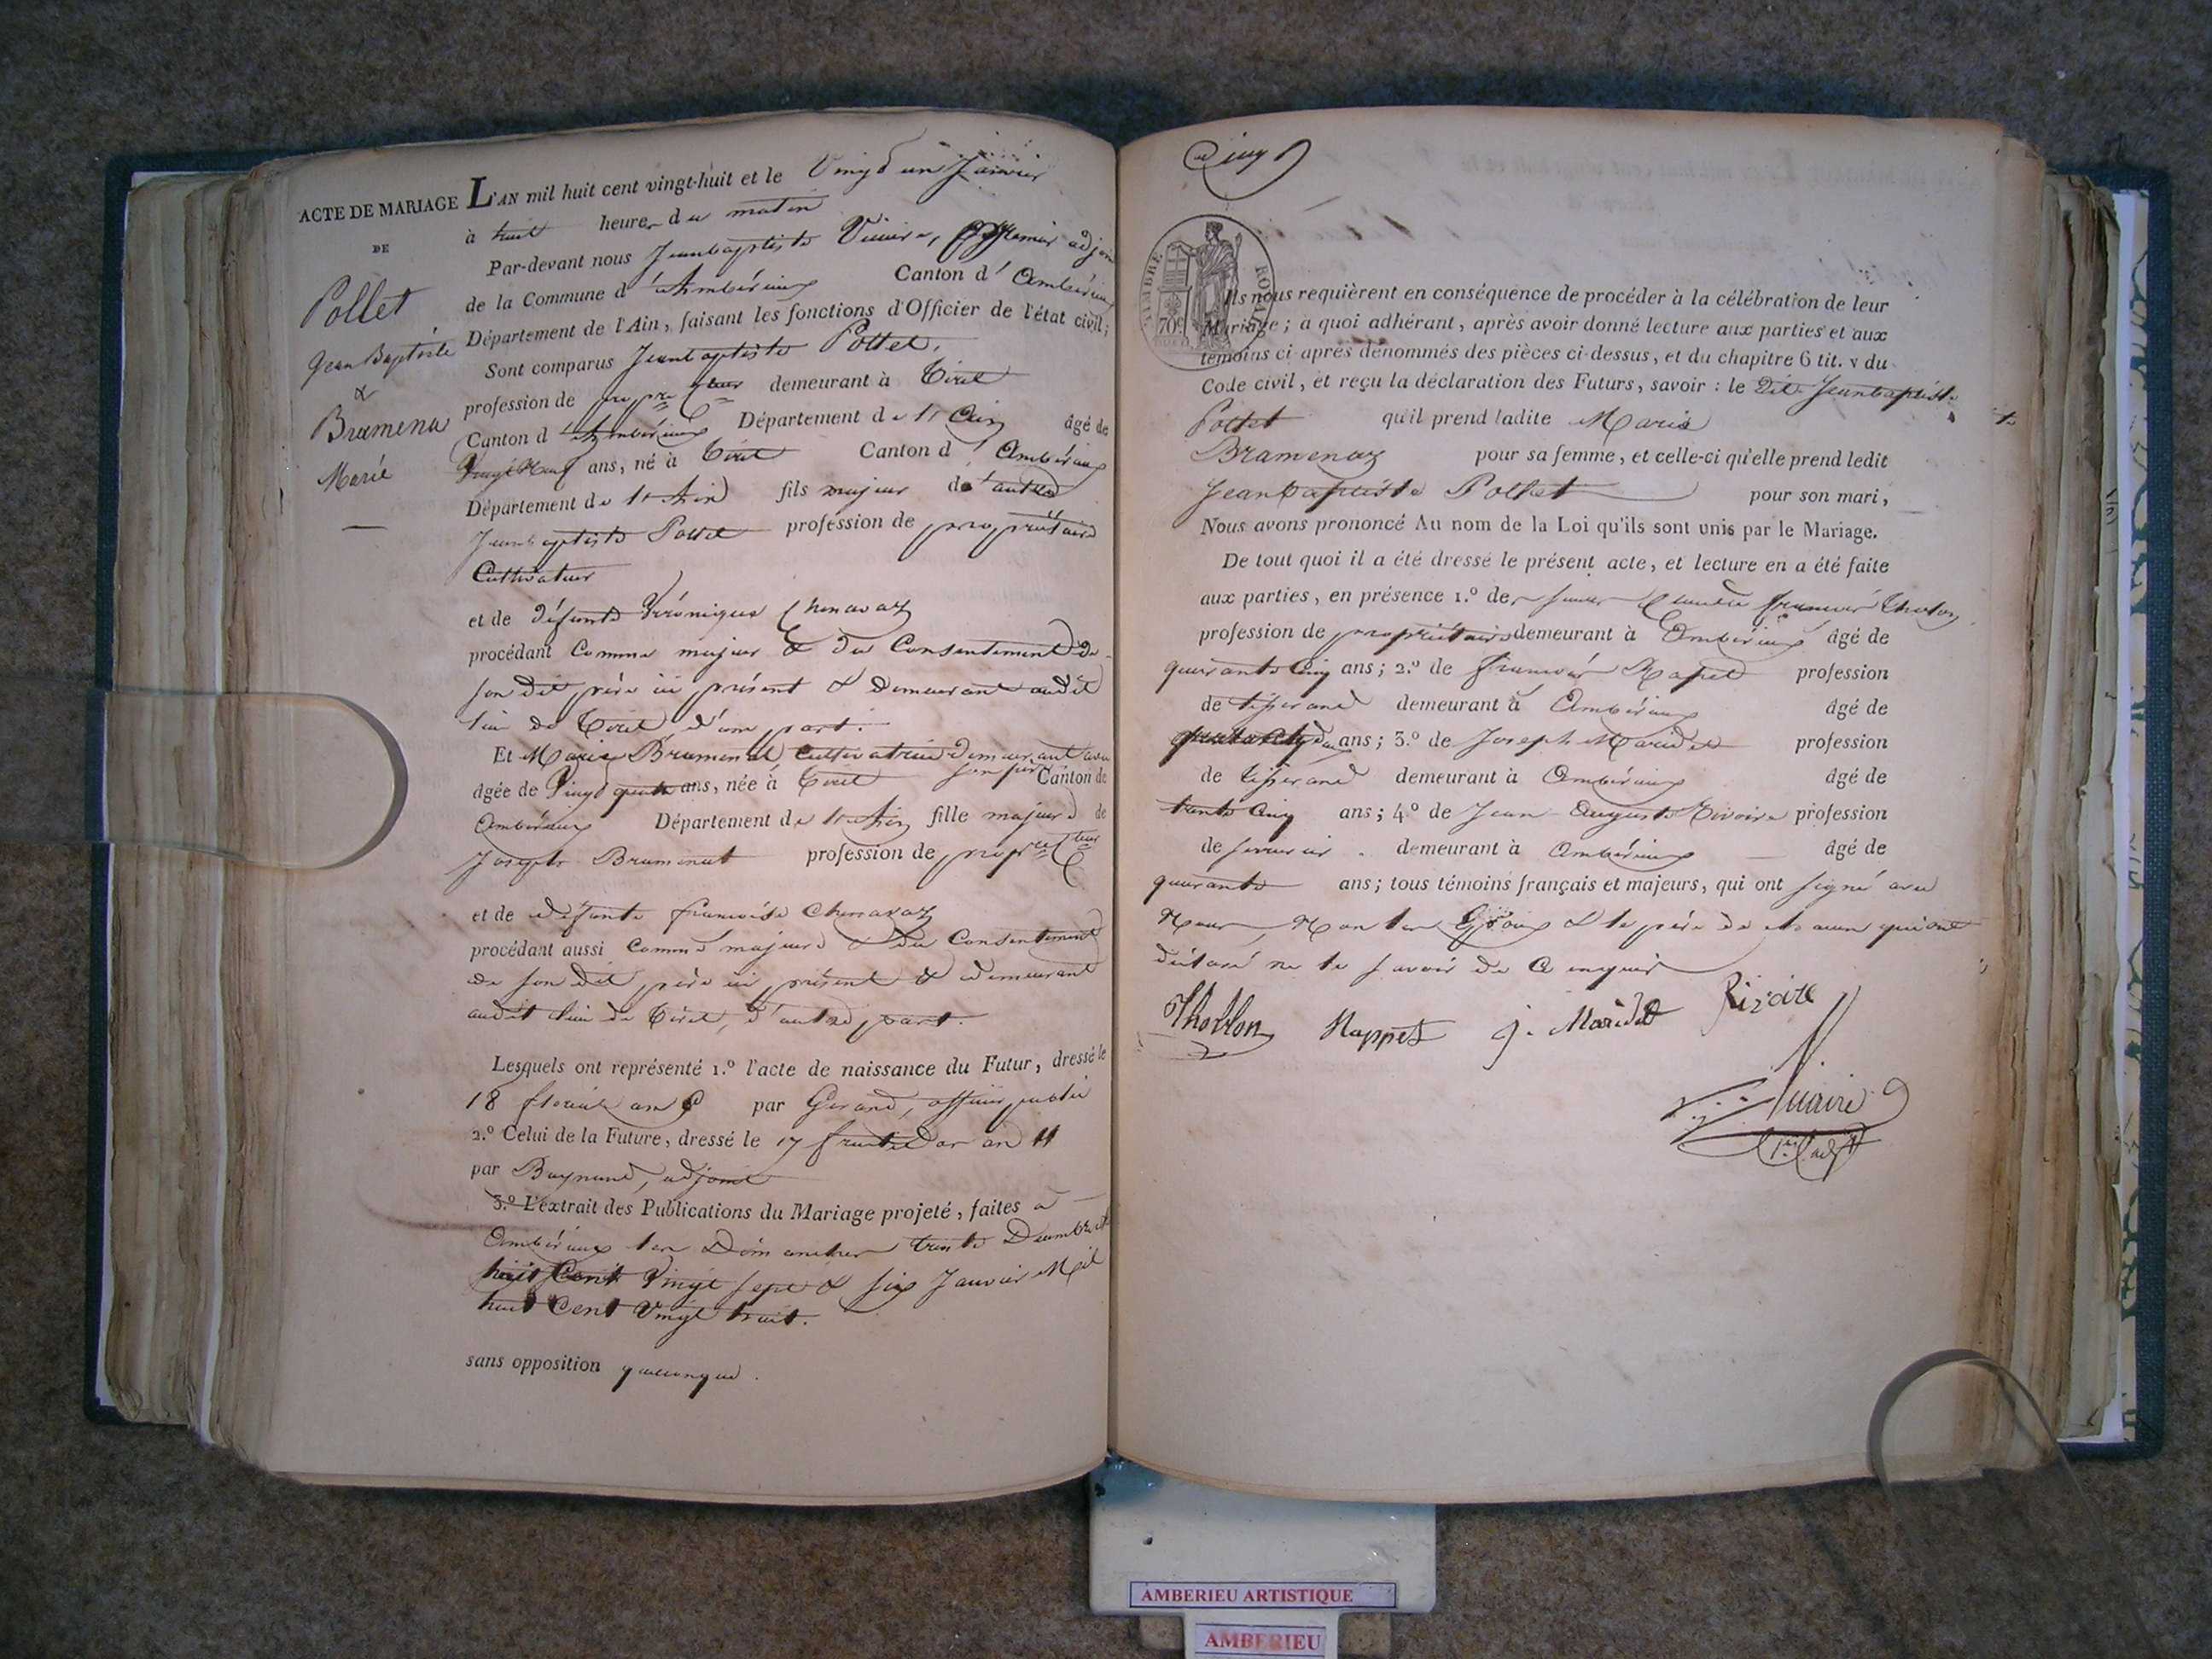 ACTE DE MARIAGE
DE
Pollet
Jean Baptiste
&
Bramena
Marie
L'AN mil huit cent vingt-huit et le Vingt un Janvier
à huit heures du matin
Par-devant nous Jeanbaptiste premier adjoint
de la Commune d'Ambérieux Canton d'Ambérieux
Département de l'Ain, faisant les fonctions d'Officier de l'état civil;
Sont comparus Jeanbaptiste Pollet,
profession de propre demeurant à Tiret
Canton d'Ambérieux Département de l'Ain âgé de
Vingt Neuf ans, né à Tiret Canton d'Ambérieux
Département de l'Ain fils majeur de autre
Jeanbaptiste Pollet profession de propriétaire
Cultivateur
et de défunte Véronique Chenavaz
procédant Comme majeur & du Consentement de
son dit père ici présent & demeurant audit
lieu de Tiret d'une part.
Et Marie Bramenat, Cultivatrice demeurant avec
son père
âgée de Vingt quatre ans, née à Tiret Canton de
Ambérieux Département de l'Ain fille majeure de
Joseph Bramenat profession de propre
et de défunte françoise Chenavaz
procédant aussi Comme majeure & du Consentement
de son dit père ici présent & demeurant
audit lieu de Tiret, d'autre part.
Lesquels ont représenté 1.º l'acte de naissance du Futur, dressé le
18 floréal an par Gerand, officier public
2.º Celui de la Future, dressé le 17 fructidor an 11
par adjoint
3.º L'extrait des Publications du Mariage projeté, faites à
Ambérieux les Dimanches trente Décembre
huit Cent Vingt sept & six Janvier Mil
huit Cent Vingt huit.
sans opposition quelconque.
Cinq
TIMBRE ROYAL
70ᶜ
Ils nous requièrent en conséquence de procéder à la célébration de leur
Mariage; à quoi adhérant, après avoir donné lecture aux parties et aux
témoins ci-après dénommés des pièces ci-dessus, et du chapitre 6 tit. v du
Code civil, et reçu la déclaration des Futurs, savoir: le dit Jeanbaptiste
Pollet qu'il prend ladite Marie
Bramenaz pour sa femme, et celle-ci qu'elle prend ledit
Jeanbaptiste Pollet pour son mari,
Nous avons prononcé Au nom de la Loi qu'ils sont unis par le Mariage.
De tout quoi il a été dressé le présent acte, et lecture en a été faite
aux parties, en présence 1.º de françois Thollon
profession de propriétaire demeurant à Ambérieux âgé de
quarante Cinq ans; 2.º de françois Rapet profession
de tisserand demeurant à Ambérieux âgé de
ans; 3.º de Joseph Maridet profession
de tisserand demeurant à Ambérieux âgé de
trente Cinq ans; 4.º de Jean Auguste Rivoire profession
de serrurier demeurant à Ambérieux âgé de
quarante ans; tous témoins français et majeurs, qui ont signé avec
Nous, Non les Epoux & le père de chacun qui ont
déclaré ne le savoir de Ce enquis
Thollon Rappet J. Maridet Rivoire
1er adjt
AMBERIEU ARTISTIQUE
AMBERIEU